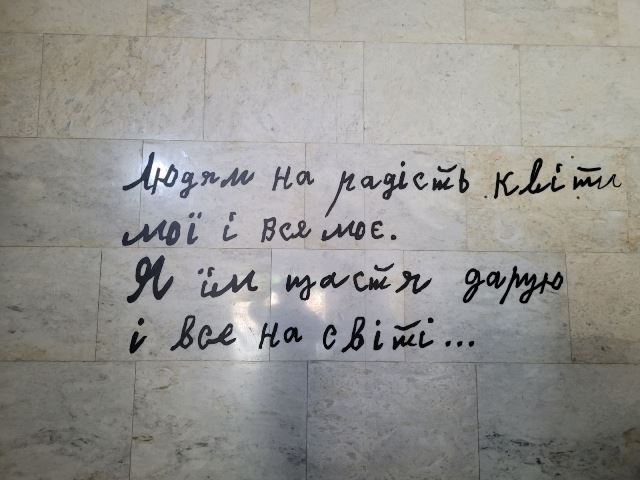 Людям на радість квіти
мої і все моє.
Я їм щастя дарую
і все на світі...